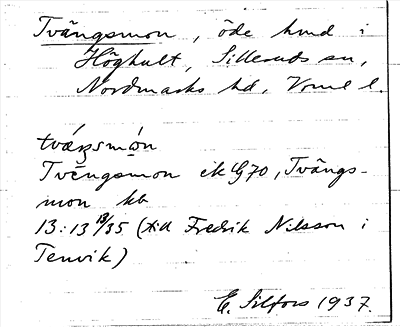 Tvängsmon, öde hmd i
Höghult, Silleruds sn,
Nordmarks hd, Vrml l.
tváŋsmòn
Tvëngsmon ek G70, Tvängs-
mon kb
13:13 18/35 (till Fredrik Nilsson i
Tenvik)
E. Silfors 1937.